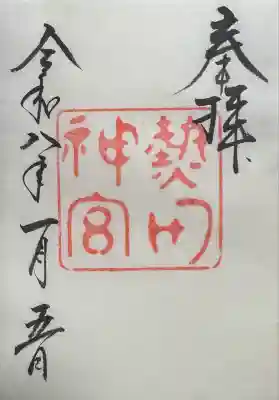 奉拝
熱田
神宮
令和八年一月五日